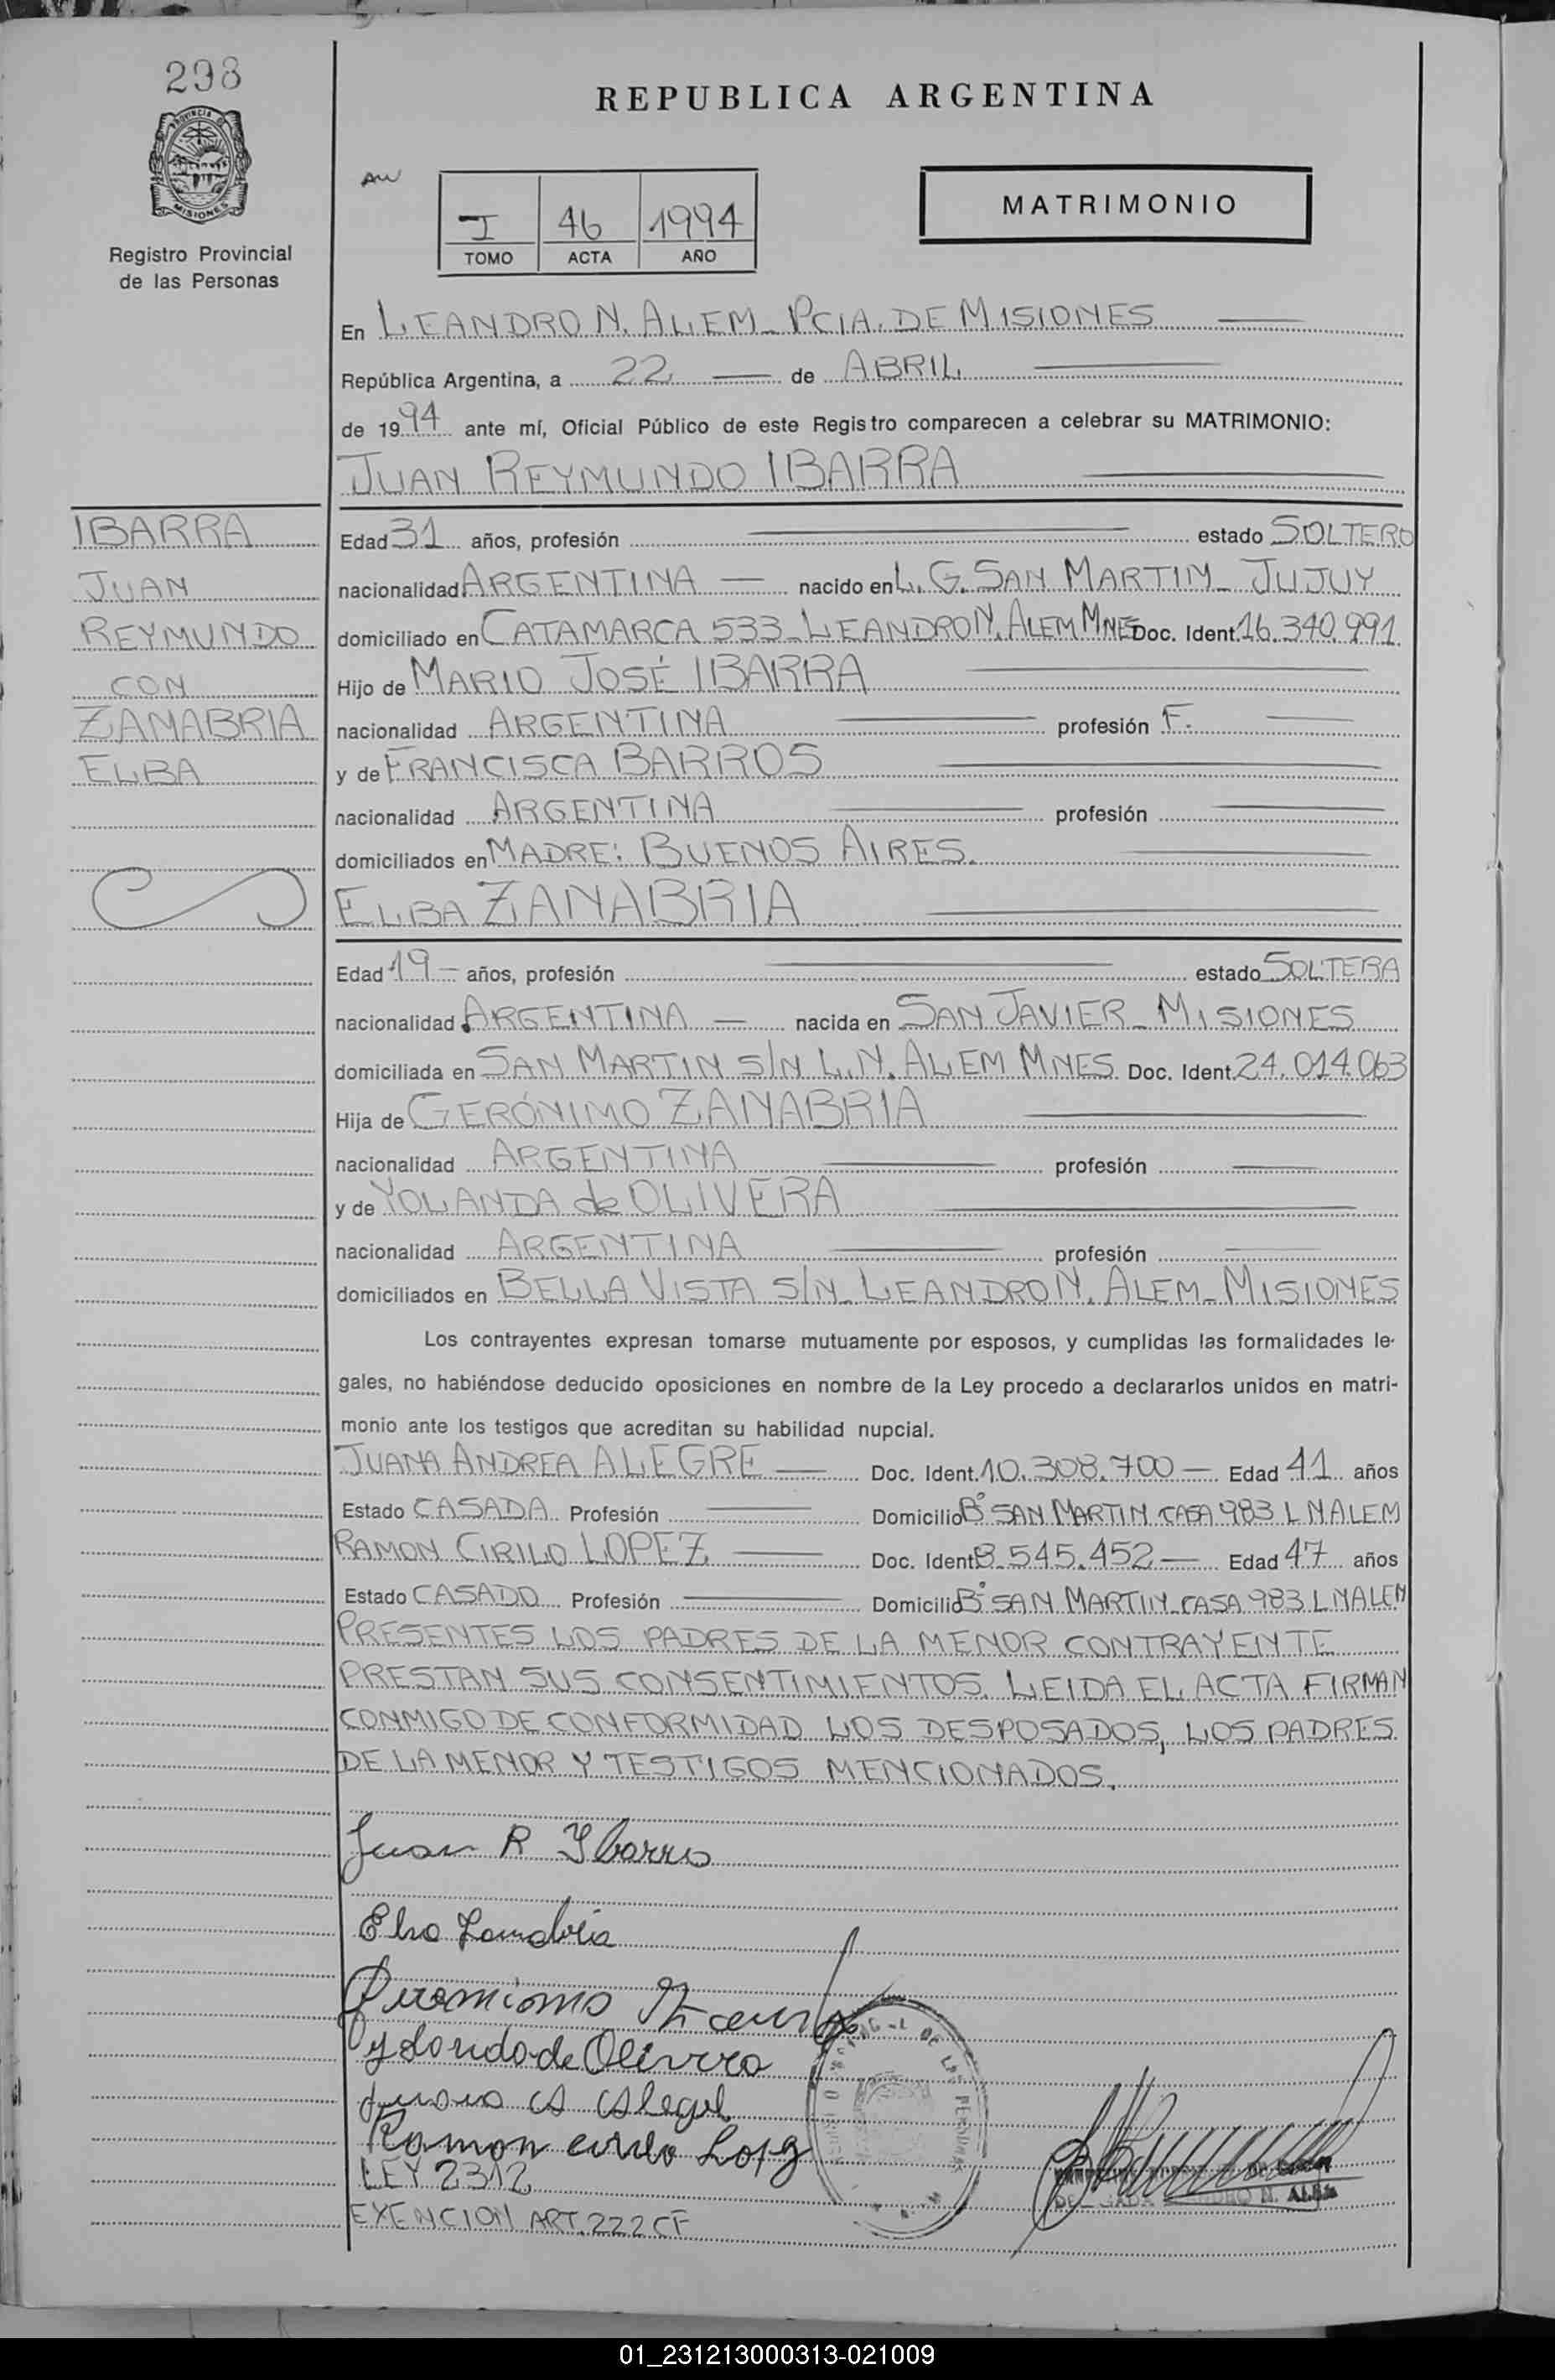 298
PROVINCIA DE
MISIONES
Registro Provincial
de las Personas
REPUBLICA ARGENTINA
I 46 1994
TOMO ACTA AÑO
MATRIMONIO
En LEANDRO N. ALEM_ PCIA. DE MISIONES
República Argentina, a 22 de ABRIL
de 1994 ante mí, Oficial Público de este Registro comparecen a celebrar su MATRIMONIO:
JUAN REYMUNDO IBARRA
IBARRA
JUAN
REYMUNDO
CON
ZANABRIA
ELBA
Edad 31 años, profesión estado SOLTERO
nacionalidad ARGENTINA nacido en L. G. SAN MARTIN_ JUJUY
domiciliado en CATAMARCA 533_LEANDRO N. ALEM MNES Doc. Ident. 16.340.991
Hijo de MARIO JOSÉ IBARRA
nacionalidad ARGENTINA profesión F.
y de FRANCISCA BARROS
nacionalidad ARGENTINA profesión
domiciliados en MADRE: BUENOS AIRES.
ELBA ZANABRIA
Edad 19 años, profesión estado SOLTERA
nacionalidad ARGENTINA nacida en SAN JAVIER_ MISIONES
domiciliada en SAN MARTIN S/N L.N. ALEM MNES. Doc. Ident. 24.014.063
Hija de GERÓNIMO ZANABRIA
nacionalidad ARGENTINA profesión
y de YOLANDA de OLIVERA
nacionalidad ARGENTINA profesión
domiciliados en BELLA VISTA S/N_ LEANDRO N. ALEM_ MISIONES
Los contrayentes expresan tomarse mutuamente por esposos, y cumplidas las formalidades le-
gales, no habiéndose deducido oposiciones en nombre de la Ley procedo a declararlos unidos en matri-
monio ante los testigos que acreditan su habilidad nupcial.
JUANA ANDREA ALEGRE Doc. Ident. 10.308.700 Edad 41 años
Estado CASADA Profesión Domicilio B° SAN MARTIN CASA 983 L N ALEM
RAMON CIRILO LOPEZ Doc. Ident 8.545.452 Edad 47 años
Estado CASADO Profesión Domicilio B° SAN MARTIN CASA 983 L N ALEM
PRESENTES LOS PADRES DE LA MENOR CONTRAYENTE
PRESTAN SUS CONSENTIMIENTOS. LEIDA EL ACTA FIRMAN
CONMIGO DE CONFORMIDAD LOS DESPOSADOS, LOS PADRES
DE LA MENOR Y TESTIGOS MENCIONADOS.
Juan R Ybarra
Elba Zanabria
Yolanda de Olivera
Ramon cirilo Lopez
LEY 2312
EXENCION ART. 222 CF
DE LAS PERSONAS
N. ALEM
01_231213000313-021009